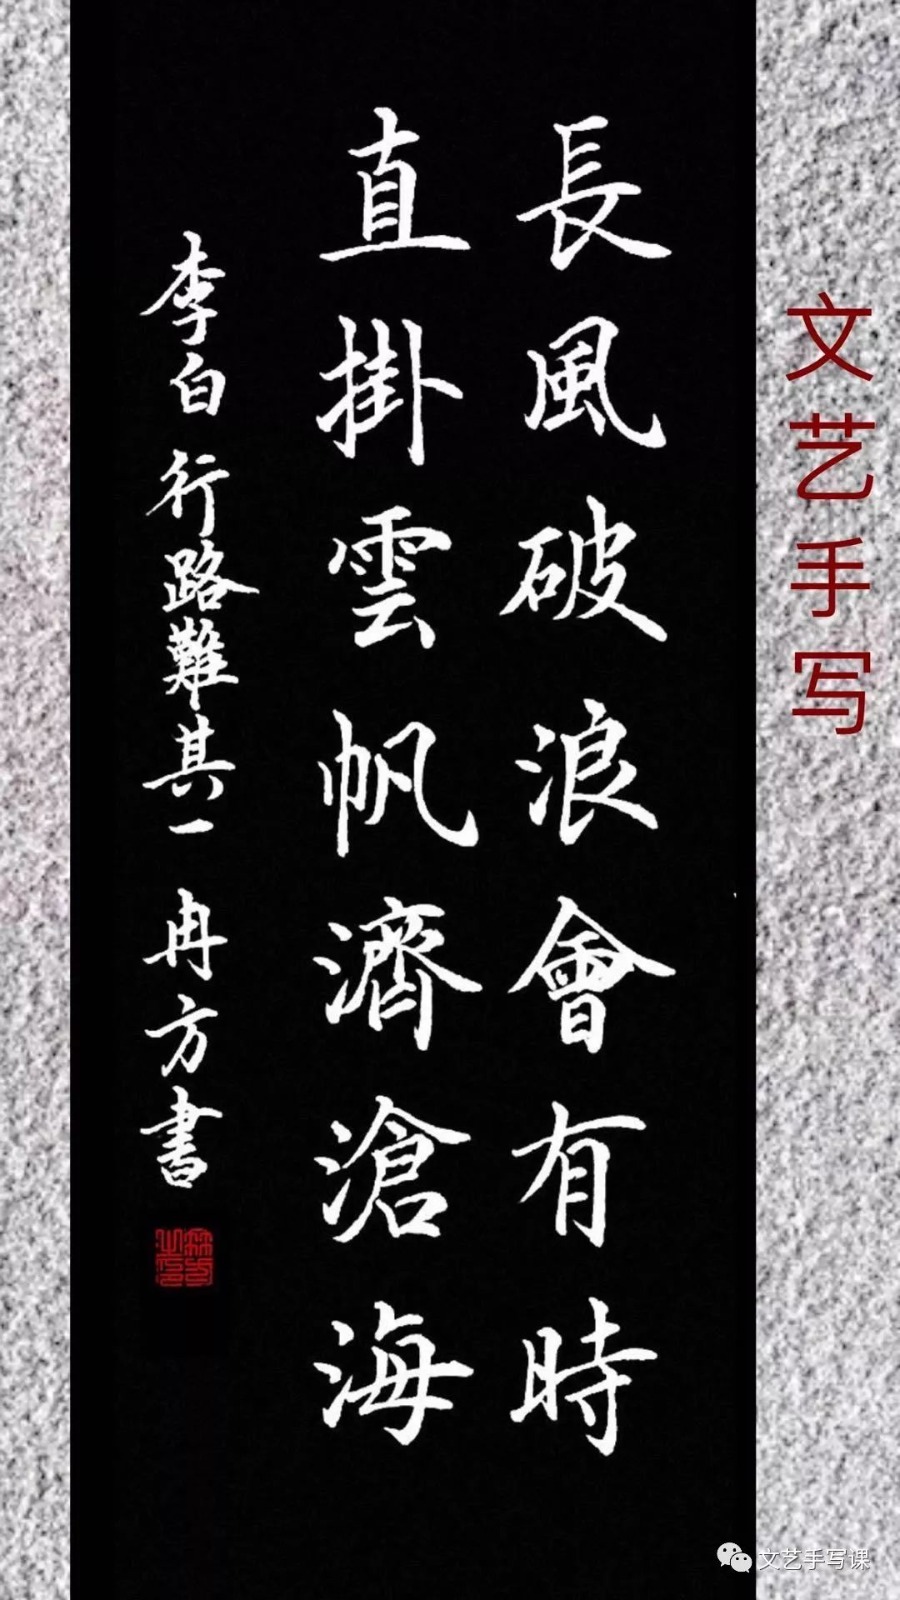 長風破浪會有時
直掛雲帆濟滄海
李白 行路難其一 冉方書
文艺手写
文艺手写课